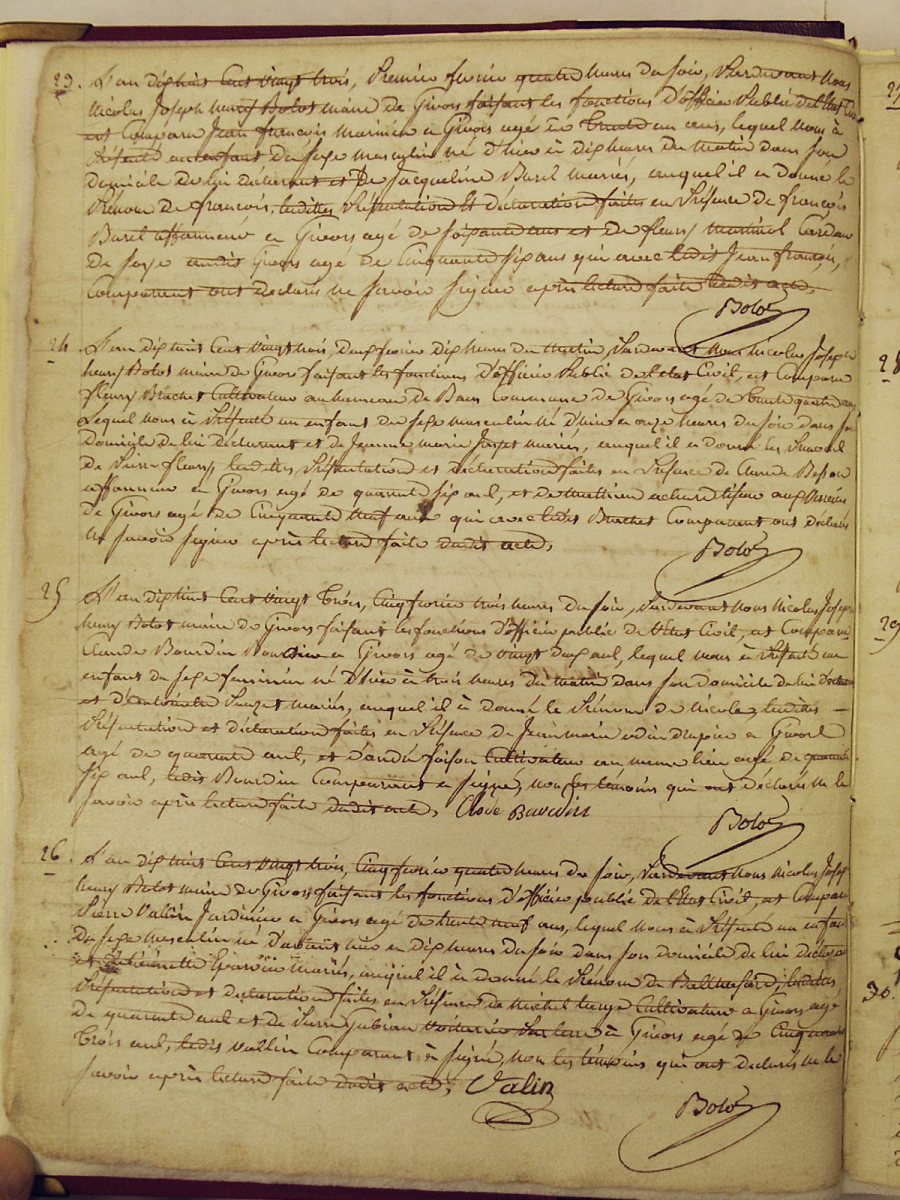 23. L'an dix huit Cent vingt trois, Premier fevrier quatre heures du soir, Pardevant Nous
Nicolas Joseph henry Bolot maire de Givors faisant les fonctions d'officier Public de l'Etat Civil
est Comparu Jean françois marinier a Givors agé de trente un ans, lequel nous à
Présenté un enfant du sexe masculin né d'hier à dix heures du matin dans son
domicile de lui déclarant et de Jacqueline Burel mariés, auquel il a donné le
Prénom de françois, lesdittes Présentation et déclaration faites en Présence de françois
Burel affanneur a Givors agé de soixante ans et de fleury
de forge audit Givors agé de Cinquante six ans qui avec ledit Jean françois,
Comparant ont déclaré ne savoir signer après lecture faite dudit acte.
Bolot
24 L'an dix huit Cent vingt trois, deux fevrier dix heures du matin, Pardevant Nous Nicolas Joseph
henry Bolot maire de Givors faisant les fonctions d'officier Public de l'etat Civil, est Comparu
fleury Brachet Cultivateur au hameau de Bans Commune de Givors agé de trente quatre ans
Lequel nous à Présenté un enfant du sexe masculin né d'hier a onze heures du soir dans son
domicile de lui déclarant et de Jeanne marie mariés, auquel il a donné les Prenoms
de Pierre fleury, lesdittes Présentation et déclaration faites en Présence de Claude Besson
affanneur a Givors agé de quarante six ans, et de Mathieu aux
de Givors agé de Cinquante Neuf ans qui avec ledit Brachet Comparant ont déclaré
Ne savoir signer après lecture faite dudit acte,
Bolot
25 L'an dix huit Cent vingt Trois, Cinq fevrier trois heures du soir, Pardevant Nous Nicolas Joseph
henry Bolot maire de Givors faisant les fonctions d'officier public de l'Etat Civil, est Comparu
Claude Bourdin a Givors agé de vingt deux ans, lequel nous à Présenté un
enfant du sexe feminin né d'hier à trois heures du matin dans son domicile de lui déclarant
et d'antoinette mariés, auquel il à donné le Prénom de Nicole, lesdittes
Présentation et déclaration faites en Présence de Jean marie a Givors
agé de quarante ans, et d'andré Cultivateur au meme lieu agé de quarante
six ans, ledit Bourdin Comparant a signé, non les témoins qui ont déclaré ne le
savoir après lecture faite dudit acte, Clode Bourdin
Bolot
26. L'an dix huit Cent vingt trois, Cinq fevrier quatre heures du soir, Pardevant Nous Nicolas Joseph
henry Bolot maire de Givors faisant les fonctions d'officier public de l'Etat Civil, est Comparu
Pierre Vallin Jardinier a Givors agé de trente neuf ans, lequel nous à Présenté un enfant
du sexe masculin né d'avant hier a dix heures du soir dans son domicile de lui déclarant
et mariés, auquel il à donné le Prénom de Balthazard, lesdittes
Présentation et déclaration faites en Présence de michel Cultivateur a Givors agé
de quarante ans et de Pierre Gubian voiturier par terre à Givors agé de Cinquante
Trois ans, ledit vallin Comparant à signé, non les témoins qui ont déclaré ne le
savoir après lecture faite dudit acte, Valin
Bolot
28
29
30.